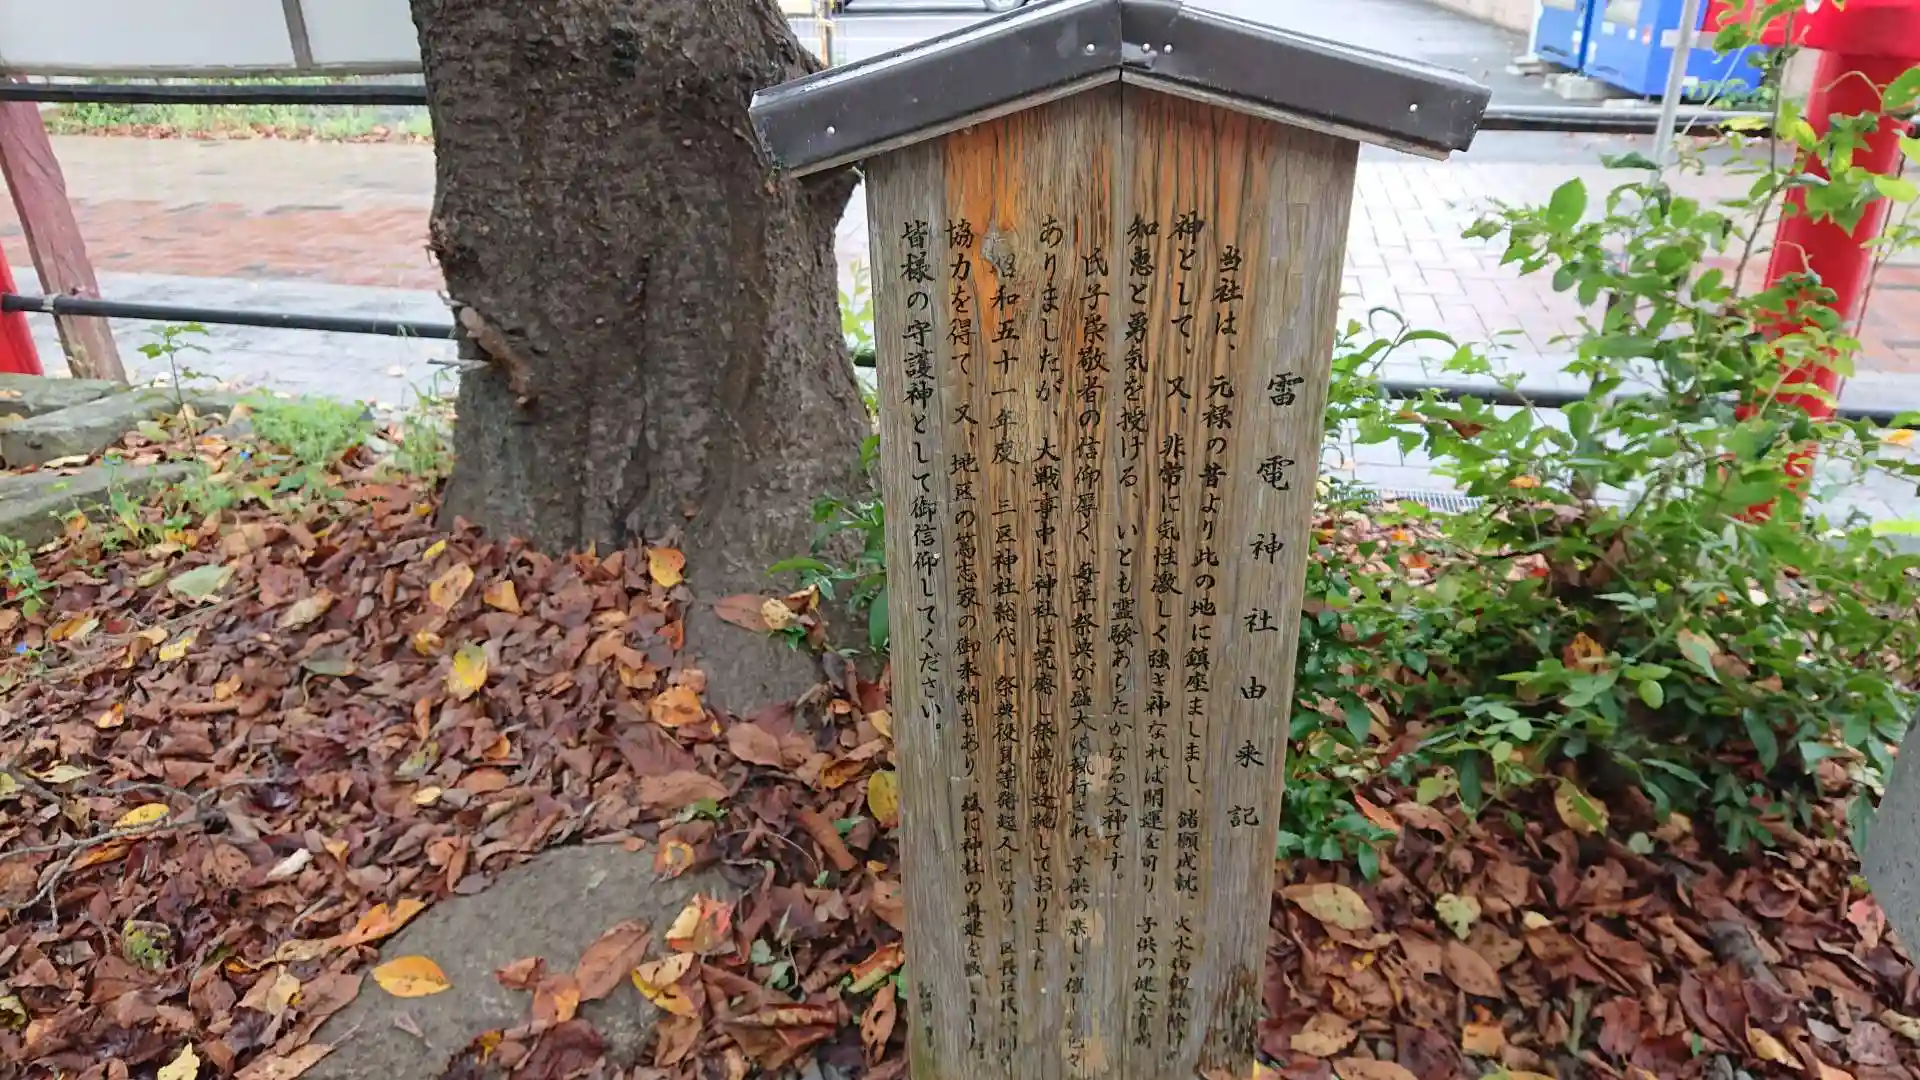 雷電神社由来記
当社は、元禄の昔より此の地に鎮座ましまし、諸願成就、火水病難除
神として、又、非常に気性激しく強き神なれば開運を司り、子供の健全育成
知恵と勇気を授ける、いとも霊験あらたかなる大神です。
氏子崇敬者の信仰厚く、毎年祭典が盛大に執行され、子供の楽しい催し 色々
ありましたが、大戦事中に神社は荒廃し祭典も途絶しておりました
昭和五十一年度、三区神社総代、祭典役員等発起人となり、区長区民
協力を得て、又、地区の篤志家の御奉納もあり、茲に神社の再建を致しました。
皆様の守護神として御信仰してください。